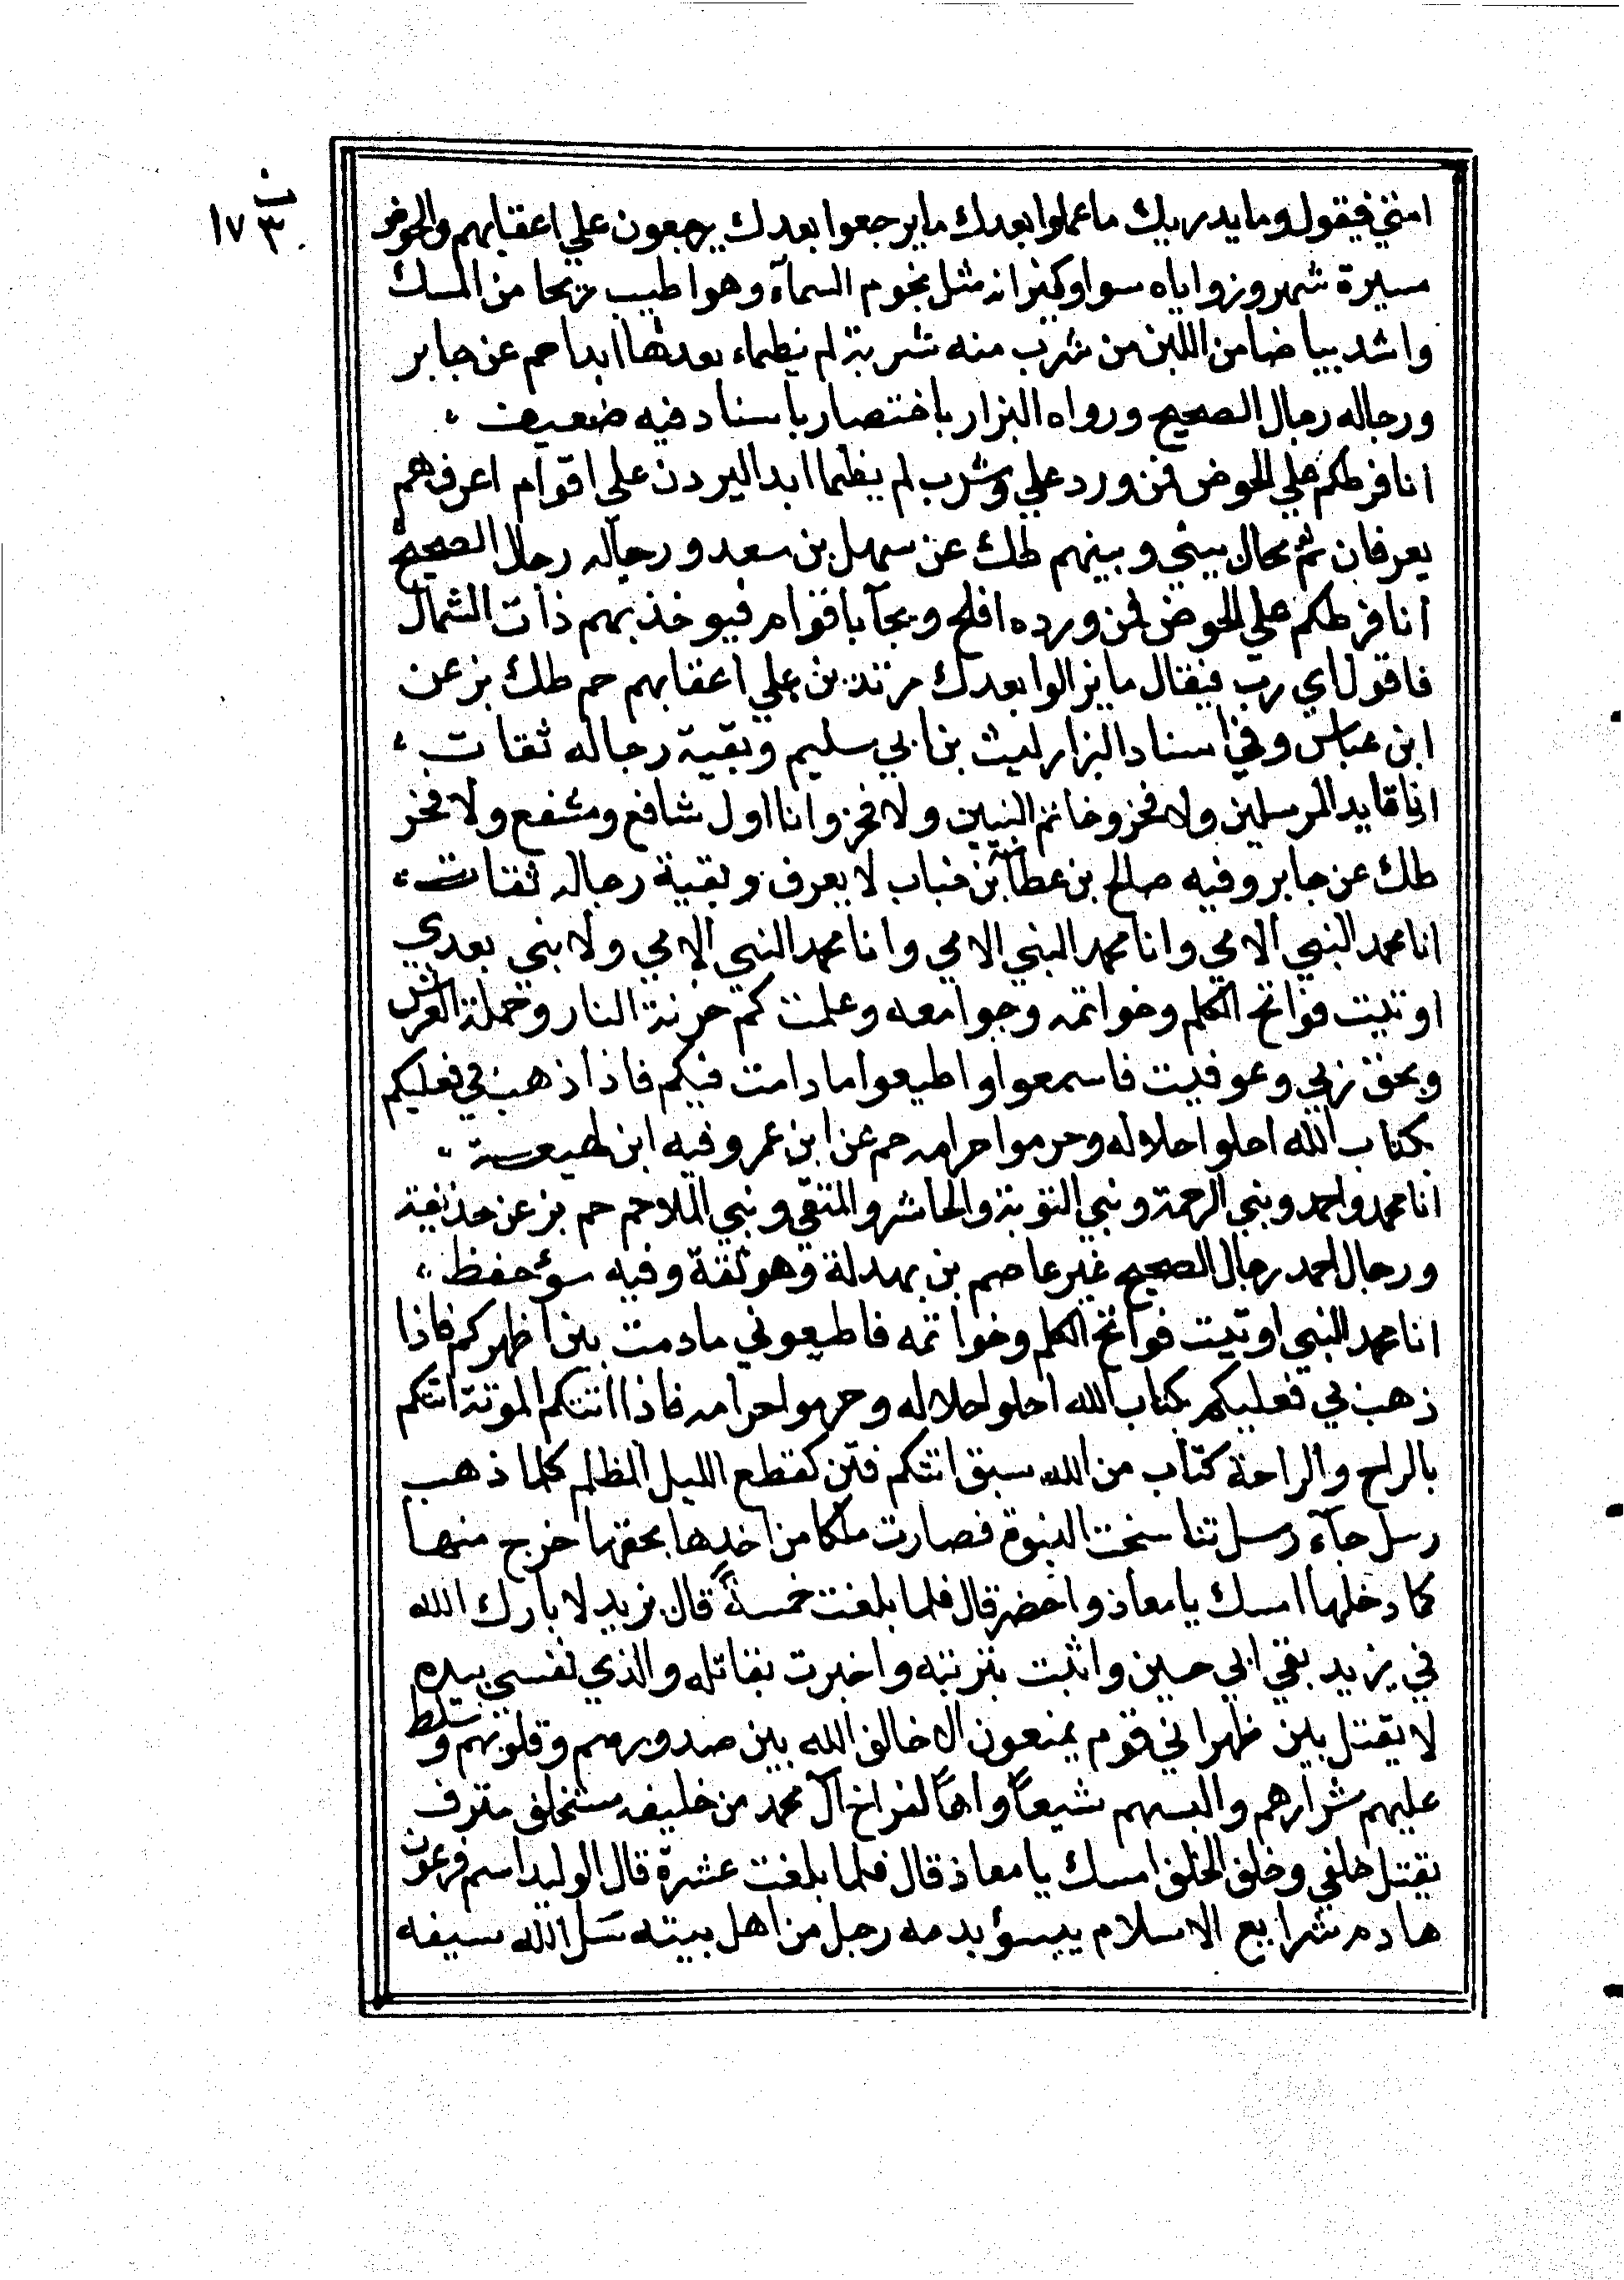 ن ١٧٣
امتي فيقول وما يدريك ما عملوا بعدك ما يرجعوا بعدك يرجعون علي اعقابهم والحوض
مسيرة شهر وزواياه سوا وكيزانه مثل نجوم السمآء وهو اطيب ريحا من المسك
واشد بياضا من اللبن من شرب منه شربة لم يظماء بعدها ابدا حم عن جابر
ورجاله رجال الصحيح ورواه البزار باختصار باسناد فيه ضعيف ،
انا فرطكم علي الحوض فمن ورد علي وشرب لم يظما ابدا ليردن على اقوام اعرفهم
يعرفان ثم يحال بيني وبينهم طك عن سهل بن سعد ورجاله رجال الصحيح
أنا فرطكم علي الحوض فمن ورده افلح ويجآ باقوام فيوخذ بهم ذات الشمال
فاقول اي رب فيقال ما يزالوا بعدك مرتدين علي اعقابهم حم طك بز عن
ابن عباس وفي اسناد البزار ليث بن ابي سليم وبقية رجاله ثقات ،
انا قايد المرسلين ولا فخر وخاتم النبيين ولا فخر وانا اول شافع ومشفع ولا فخر
طك عن جابر وفيه صالح بن عطآ بن خباب لا يعرف وبقية رجاله ثقات ،
انا محمد النبي الامي وانا محمد النبي الامي وانا محمد النبي الامي ولا نبي بعدي
اوتيت فواتح الكلم وخواتمه وجوامعه وعلمت كم خزنة النار وحملة العرش
وبحق ربي وعوفيت فاسمعوا واطيعوا ما دامت فيكم فاذا ذهب بي فعليكم
بكتاب الله احلوا حلاله وحرموا حرامه حم عن ابن عمر وفيه ابن لهيعة ،
انا محمد واحمد ونبي الرحمة ونبي التوبة والحاشر والمقفي ونبي الملاحم حم بز عن حذيفة
ورجال احمد رجال الصحيح غير عاصم بن بهدلة وهو ثقة وفيه سوء حفظ ،
انا محمد النبي اوتيت فواتح الكلم وخواتمه فاطيعوني ما دمت بين اظهركم فاذا
ذهب بي فعليكم بكتاب الله احلوا حلاله وحرموا حرامه فاذا اتتكم الموتة اتتكم
بالراح والراحة كتاب من الله سبق اتتكم فتن كقطع الليل المظلم كلما ذهب
رسل جآء رسل تناسخت النبوة فصارت ملكا من اخدها بحقها خرج منها
كما دخلها امسك يا معاذ واحضر قال فلما بلغت خمسةً قال يزيد لا بارك الله
في يزيد بقي ابي حسين واتيت بتربته واخبرت بقاتله والذي نفسي بيده
لا يقتل بين ظهراني قوم يمنعون الا خالف الله بين صدورهم وقلوبهم وسلط
عليهم شرارهم والبسهم شيعاً واهاً لفراخ آل محمد من خليفه مستخلف مترف
يقتل خلفي وخلف الخلف امسك يا معاذ قال فلما بلغت عشرة قال الوليد اسم فرعون
هادم شرايع الاسلام يبسؤ بدمه رجل من اهل بيته سَل الله سيفه